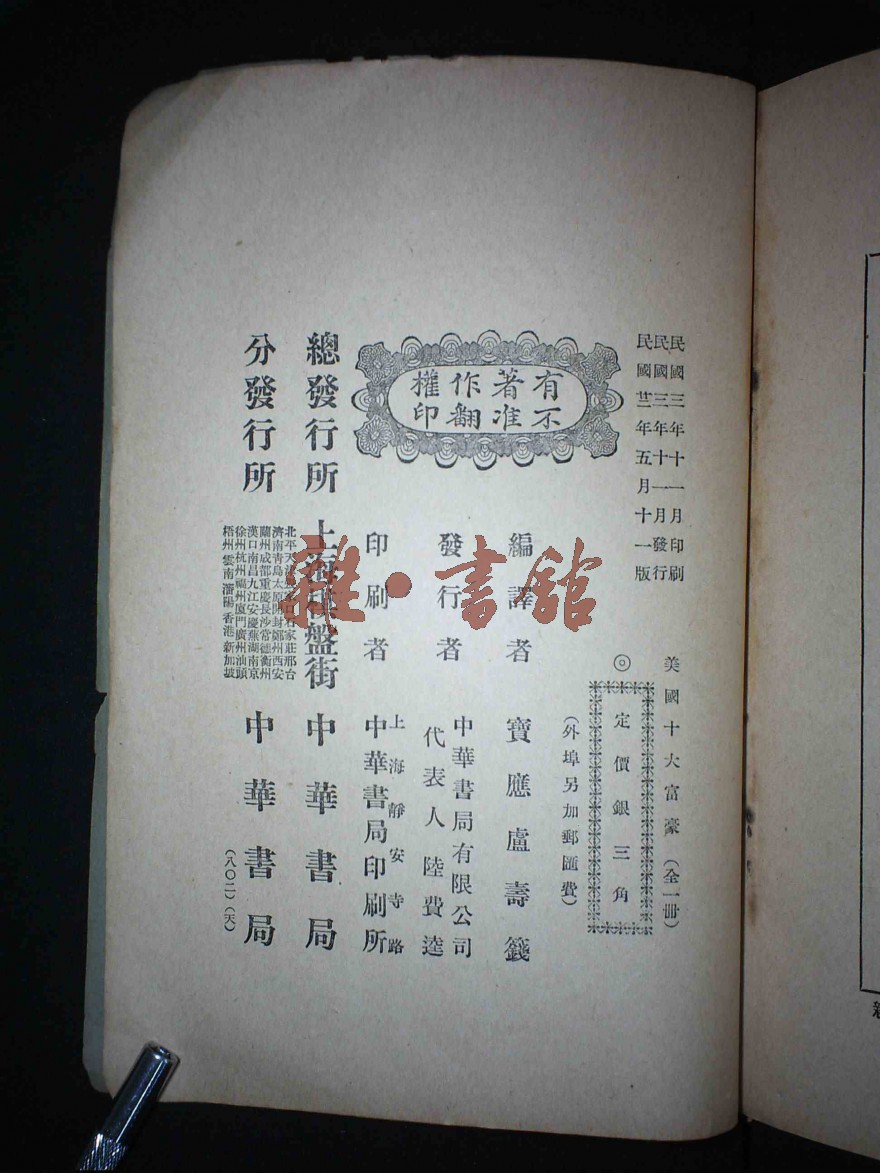 民國三年十一月印刷
民國三年十一月發行
民國廿一年五月十一版
美國十大富豪(全一冊)
◎定價銀三角
(外埠另加郵匯費)
有著作權
不准翻印
編譯者 寶應盧壽籛
發行者 中華書局有限公司
代表人陸費逵
印刷者 上海靜安寺路
中華書局印刷所
總發行所 上海棋盤街 中華書局
分發行所
北平天津 家莊邢台
濟南青島太原開封鄭州西安
蘭州成都重慶長沙常德衡州
漢口南昌九江安慶蕪湖南京
徐州杭州福州廈門廣州汕頭
梧州雲南瀋陽香港新加坡
中華書局
(八〇二)(天)
雜·書館